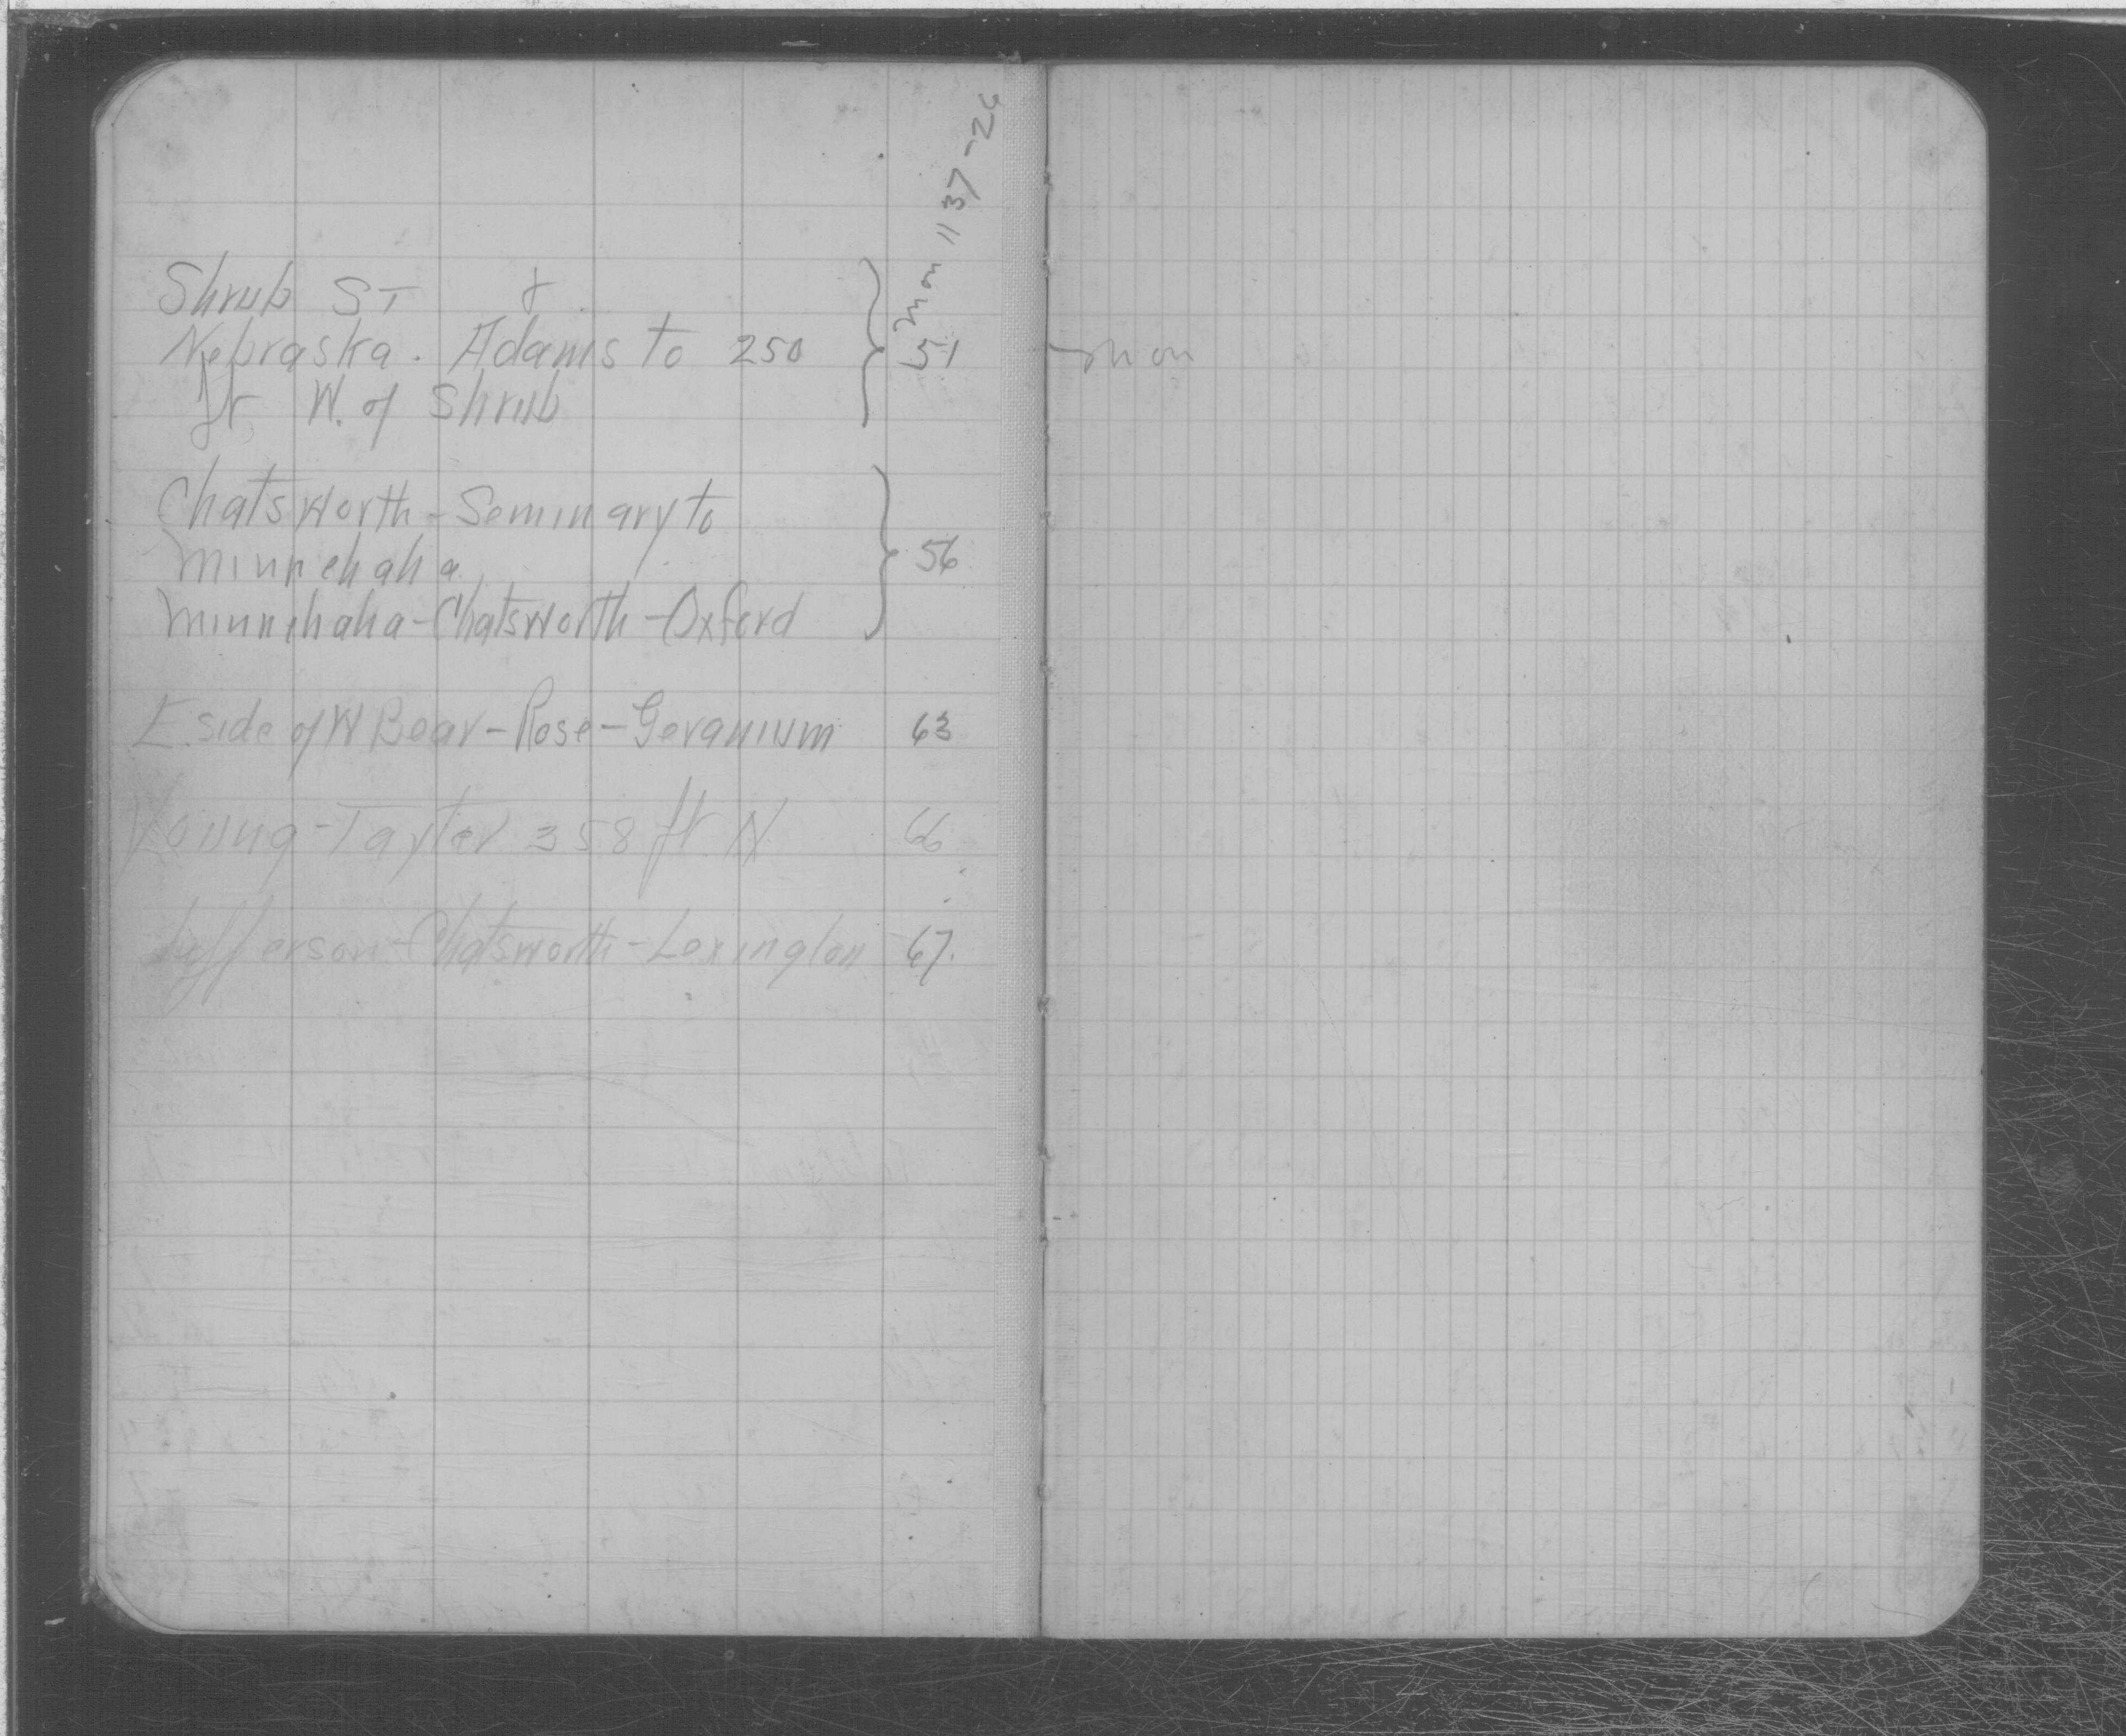 Shrub ST &
Nebraska. Adams to 250
ft W. of Shrub
51
mon 11 37-26
mon
Chatsworth - Seminary to
Minnehaha
56
Minnehaha - Chatsworth - Oxford
E. side of W Bear - Rose - Geranium 63
Young - Taylor 358 ft N 66
Jefferson - Chatsworth - Lexington 67.